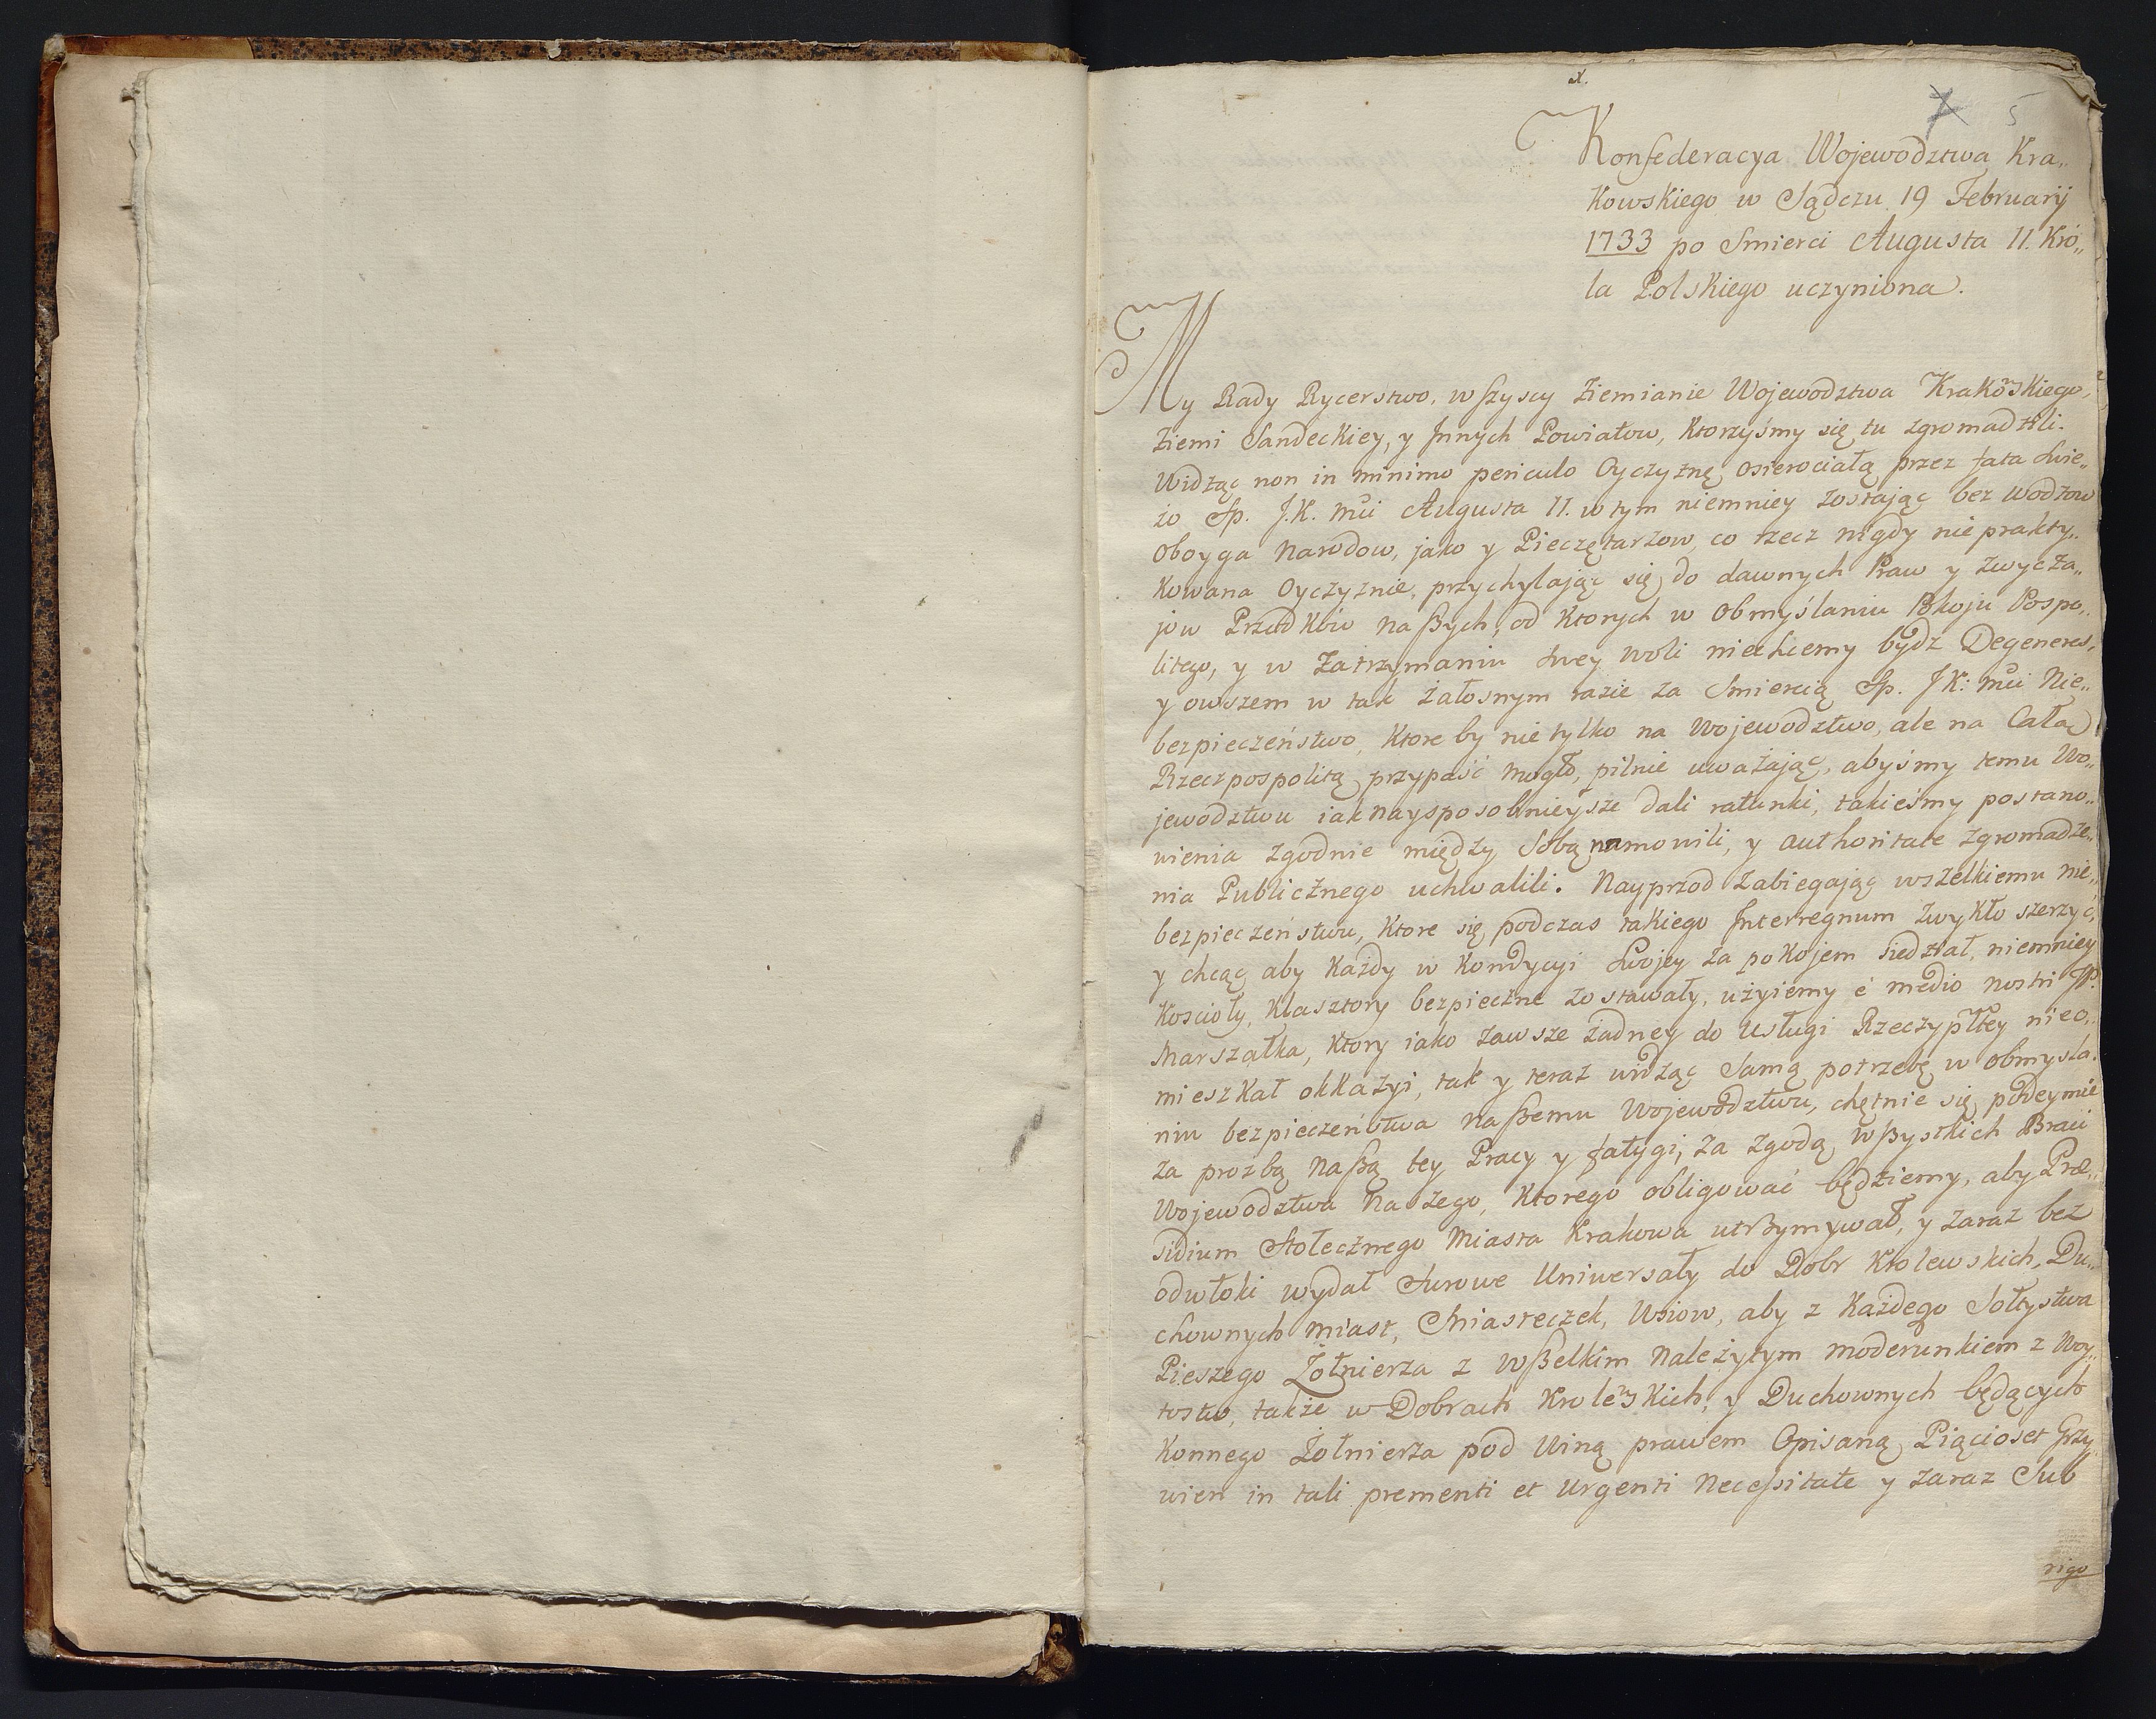 1.
7 5
Konfederacya Wojewodztwa Kra„
kowskiego w Sądczu 19 Februarij
1733 po Smierci Augusta II. Kró„
la Polskiego uczyniona.
My Rady Rycerstwo, wszyscy Ziemianie Wojewodztwa Krakowskiego,
Ziemi Sandeckiey, y Innych Powiatow, ktorzyśmy się tu zgromadzili.
Widząc non in minimo periculo Oyczyznę osierociałą przez fata swie„
żo Sp. J.K. Mci Augusta II. w tym niemniey zostając bez wodzow
oboyga Narodow, jako y Pieczętarzow, co rzecz nigdy nie prakty„
kowana Oyczyznie, przychylając się do dawnych Praw y zwycza„
jow Przodków naszych, od ktorych w obmyślaniu Pokoju Pospo„
litego, y w zatrzymaniu swey woli niechcemy bydz Degeneres,
y owszem w tak żałosnym razie za Smiercią Sp. JK: Mci Nie„
bezpieczeństwo, ktore by nie tylko na Wojewodztwo, ale na Całą
Rzeczpospolitą przypaść mogło, pilnie uważając, abyśmy temu Wo„
jewodztwu iak naysposobnieysze dali ratunki, takieśmy postano„
wienia zgodnie między Sobą namowili, y authoritate zgromadze„
nia Publicznego uchwalili. Nayprzod zabiegając wszelkiemu nie„
bezpieczeństwu, ktore się podczas takiego Interregnum zwykło szerzyć,
y chcąc aby każdy w kondycyi Swojey za pokojem siedział, niemniey
kościoły, klasztory bezpieczne zostawały, użyiemy é medio nostri JP.
Marszałka, ktory iako zawsze żadney do usługi Rzeczypłtey nieo„
mieszkał okkazyi, tak y teraz widząc samą potrzebę w obmysla„
niu bezpieczeństwa naszemu Wojewodztwu, chętnie się podeymie
za prozbą naszą tey Pracy y fatygi, za zgodą wszystkich Braci
Wojewodztwa naszego, ktorego obligować będziemy, aby Præ„
sidium Stołecznego Miasta Krakowa utrzymywał, y zaraz bez
odwłoki wydał surowe Uniwersały do Dobr Krolewskich, Du„
chownych miast, Miasteczek, Wsiow, aby z każdego Sołtystwa
Pieszego Żołnierza z wszelkim należytym moderunkiem z Woy„
tostw, także w Dobrach Krolewskich, y Duchownych będących
konnego Żołnierza pod winą prawem Opisaną Pięcioset Grzy„
wien in tali prementi et urgenti necessitate y zaraz Sub
rigo